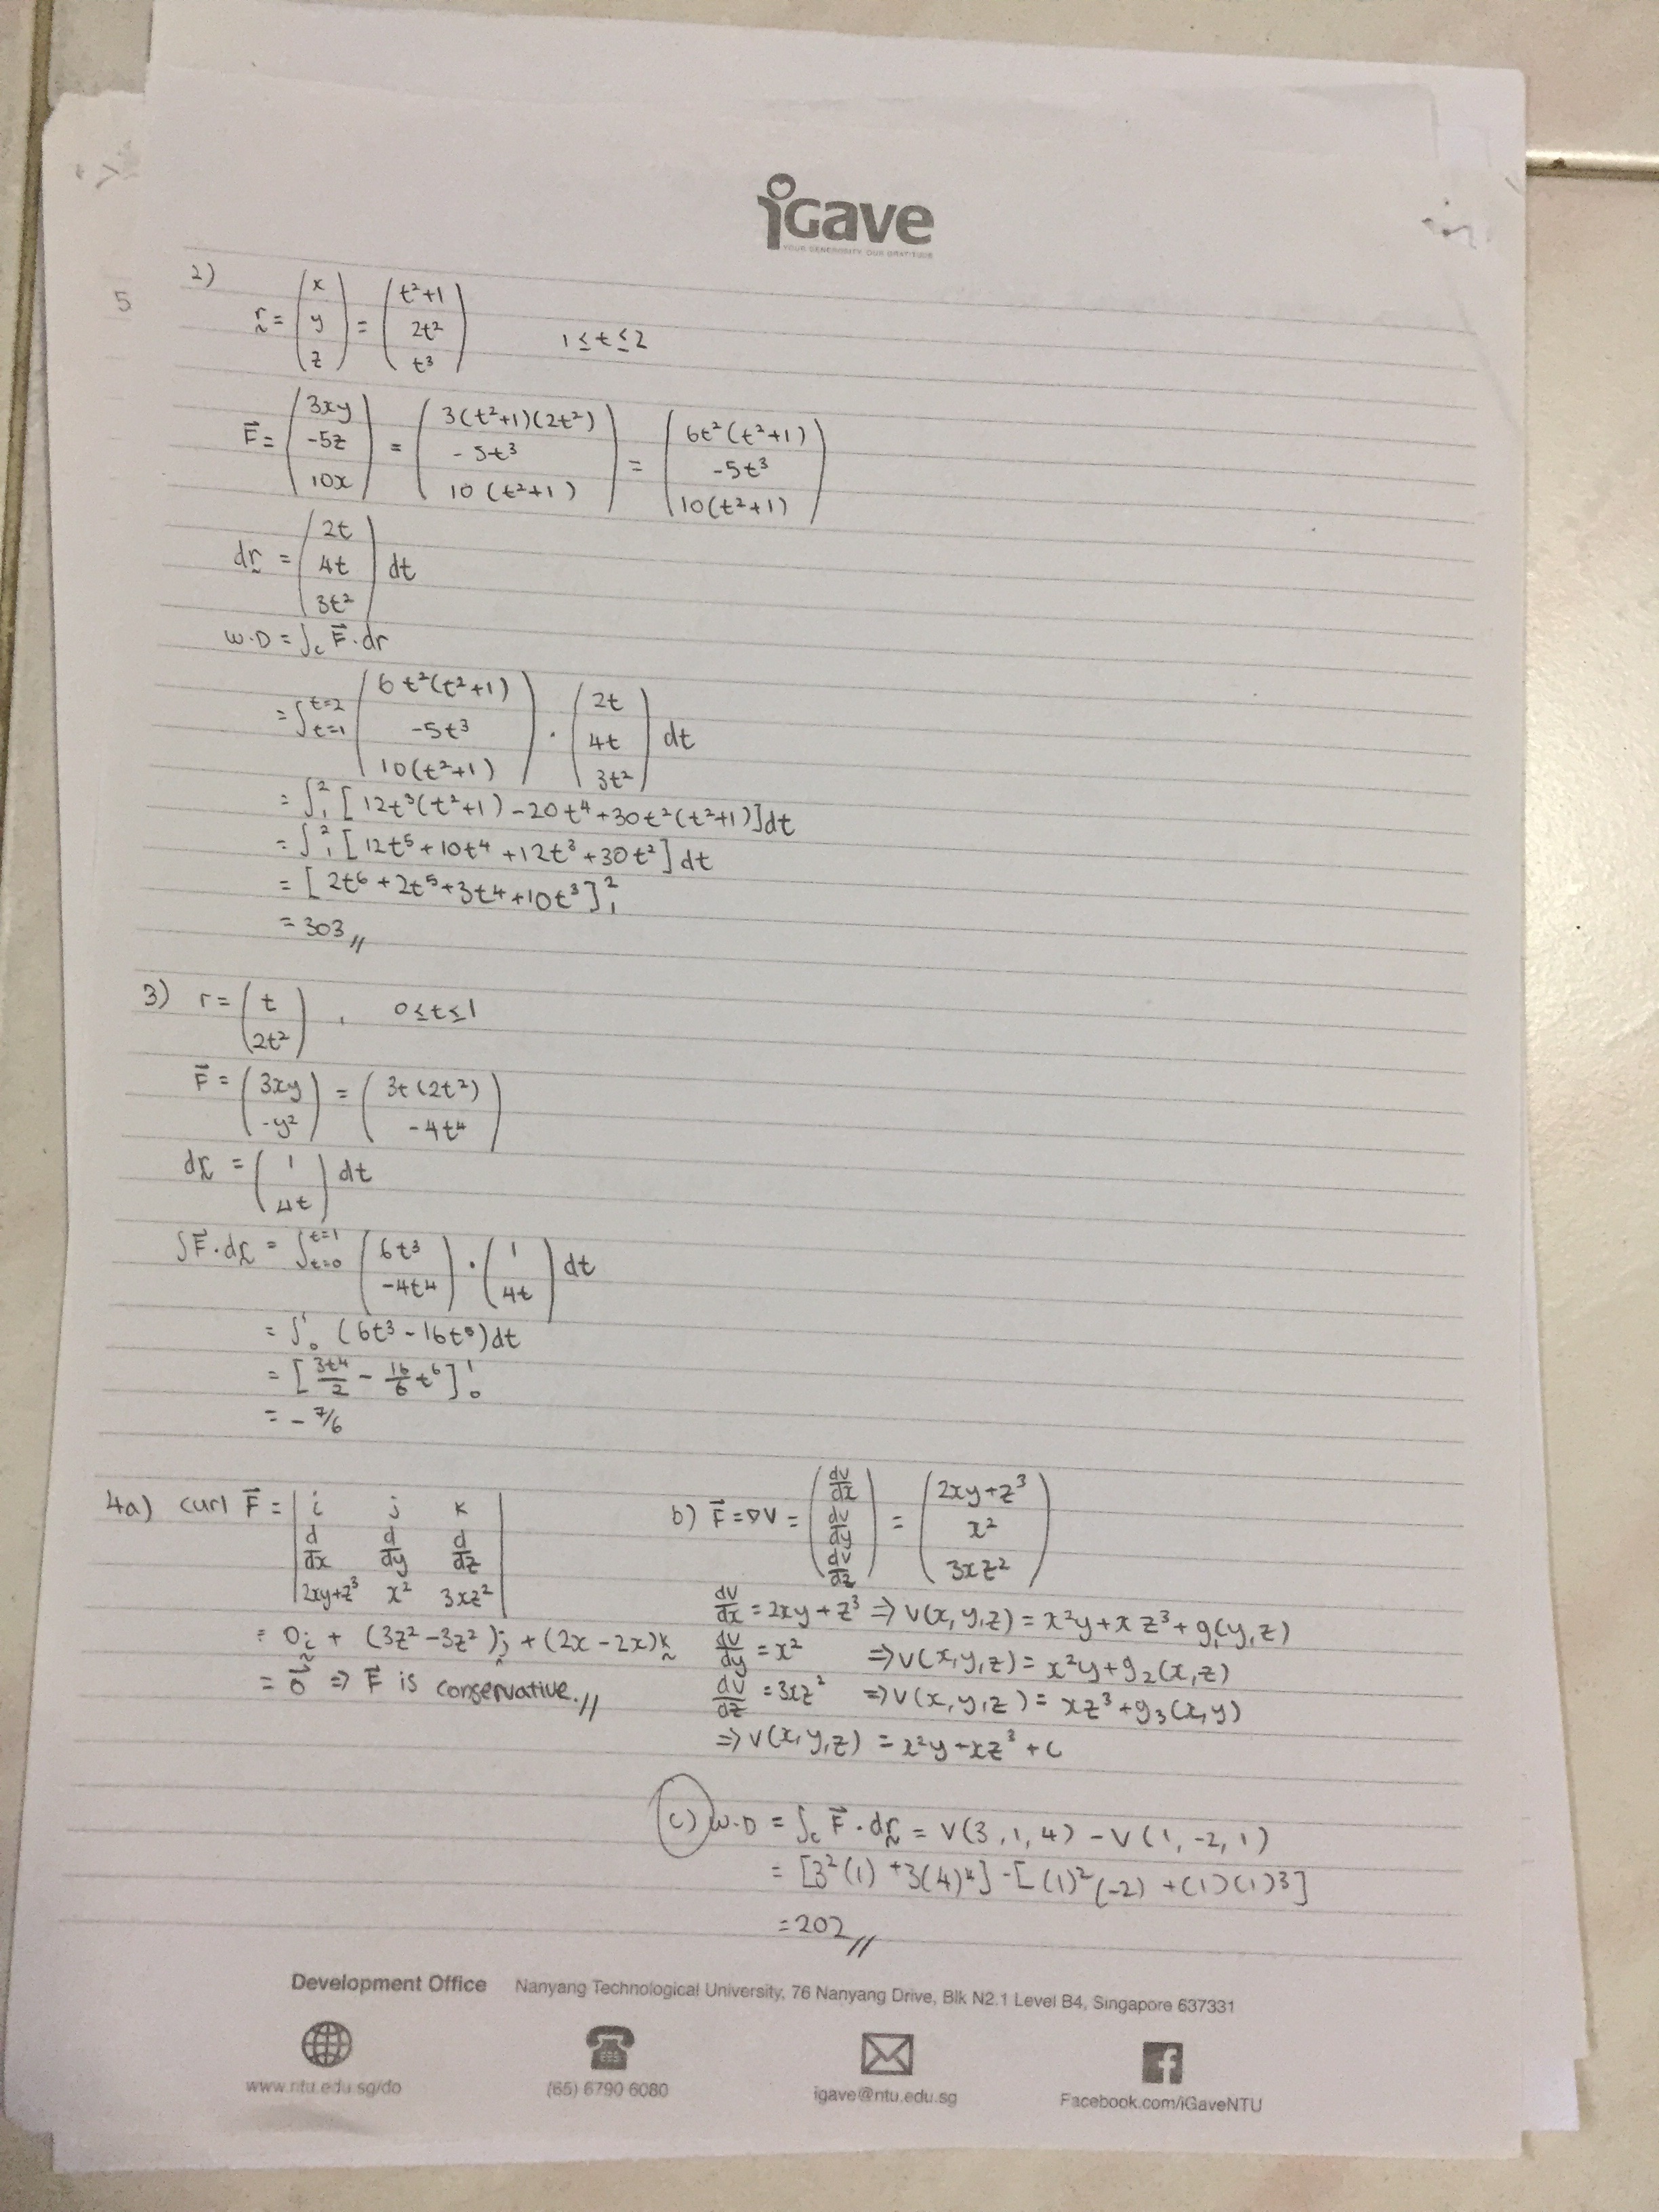 iGave
YOUR GENEROSITY, OUR GRATITUDE
5
2)
r = (x y z) = (t²+1 2t² t³) 1 ≤ t ≤ 2
F⃗ = (3xy -5z 10x) = (3(t²+1)(2t²) -5t³ 10(t²+1)) = (6t²(t²+1) -5t³ 10(t²+1))
dr = (2t 4t 3t²) dt
W.D = ∫c F⃗ · dr
= ∫t=1 t=2 (6t²(t²+1) -5t³ 10(t²+1)) · (2t 4t 3t²) dt
= ∫₁² [12t³(t²+1) - 20t⁴ + 30t²(t²+1)] dt
= ∫₁² [12t⁵ + 10t⁴ + 12t³ + 30t²] dt
= [2t⁶ + 2t⁵ + 3t⁴ + 10t³]₁²
= 303 //
3) r = (t 2t²), 0 ≤ t ≤ 1
F⃗ = (3xy -y²) = (3t(2t²) -4t⁴)
dr = (1 4t) dt
∫F⃗ · dr = ∫t=0 t=1 (6t³ -4t⁴) · (1 4t) dt
= ∫₀¹ (6t³ - 16t⁵) dt
= [3t⁴/2 - 16/6 t⁶]₀¹
= - 7/6
4a) curl F⃗ = | i j k
d/dx d/dy d/dz
2xy+z³ x² 3xz² |
= 0i + (3z² - 3z²)j + (2x - 2x)k
= 0⃗ ⇒ F⃗ is conservative. //
b) F⃗ = ∇V = (dV/dx dV/dy dV/dz) = (2xy+z³ x² 3xz²)
dV/dx = 2xy + z³ ⇒ V(x,y,z) = x²y + xz³ + g₁(y,z)
dV/dy = x² ⇒ V(x,y,z) = x²y + g₂(x,z)
dV/dz = 3xz² ⇒ V(x,y,z) = xz³ + g₃(x,y)
⇒ V(x,y,z) = x²y + xz³ + C
c) W.D = ∫c F⃗ · dr = V(3, 1, 4) - V(1, -2, 1)
= [3²(1) + 3(4)⁴] - [(1)²(-2) + (1)(1)³]
= 202 //
Development Office Nanyang Technological University, 76 Nanyang Drive, Blk N2.1 Level B4, Singapore 637331
www.ntu.edu.sg/do (65) 6790 6080 igave@ntu.edu.sg Facebook.com/iGaveNTU